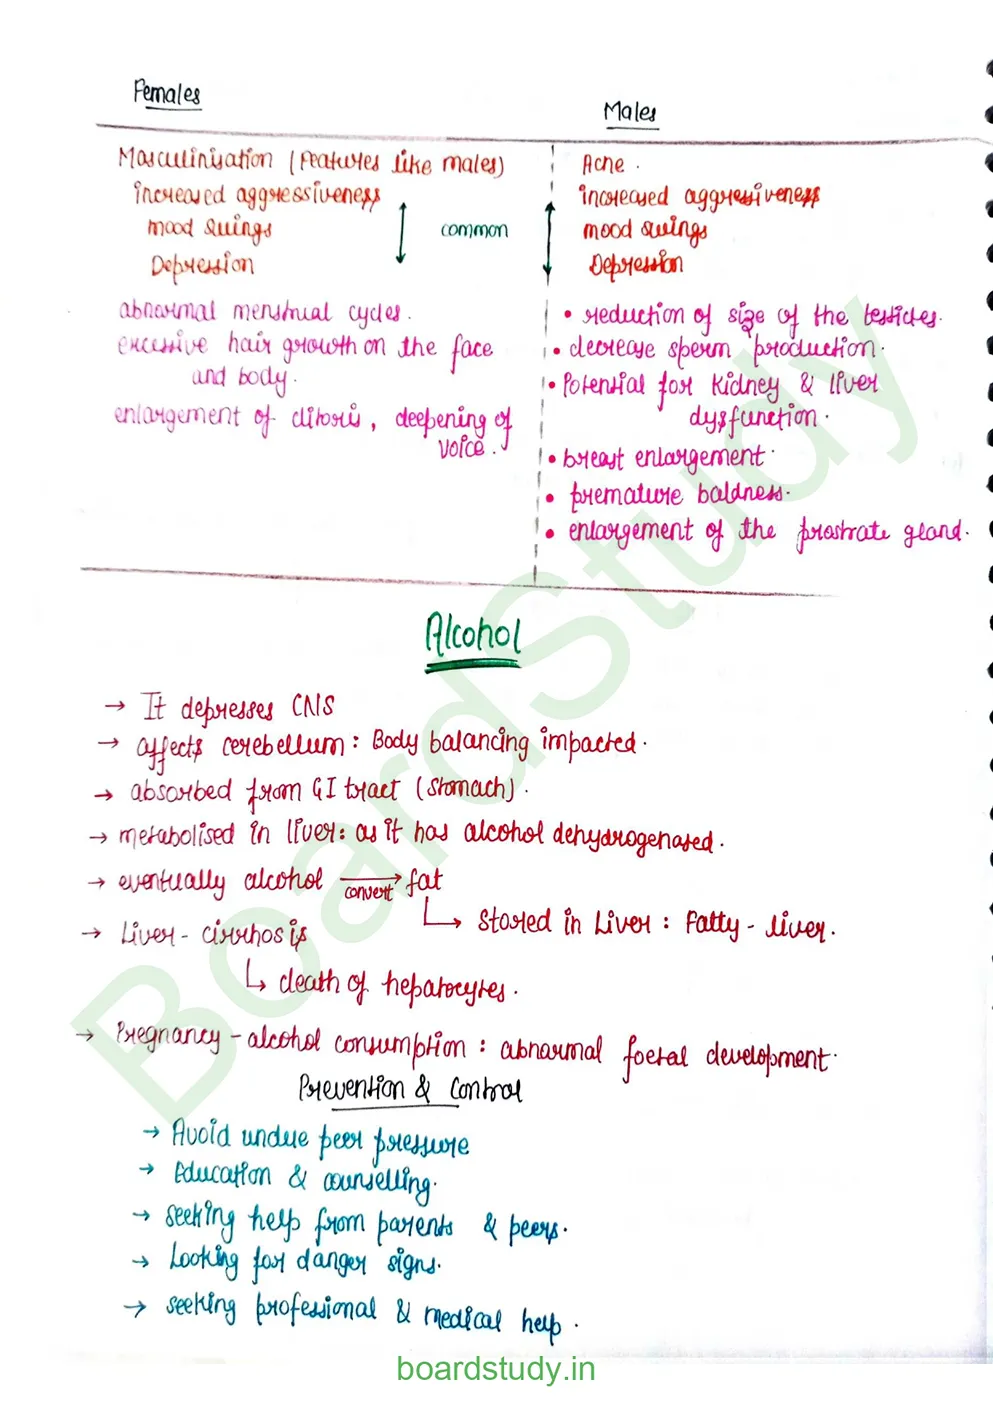 Females
Males
Masculinisation (Features like males)
increased aggressiveness
mood swings
Depression
common
Acne.
increased aggressiveness
mood swings
Depression
abnormal menstrual cycles.
excessive hair growth on the face
and body.
enlargement of clitoris, deepening of
voice.
• reduction of size of the testicles.
• decrease sperm production.
• Potential for kidney & liver
dysfunction.
• breast enlargement.
• premature baldness.
• enlargement of the prostrate gland.
Alcohol
→ It depresses CNS
→ affects cerebellum: Body balancing impacted.
→ absorbed from GI tract (stomach).
→ metabolised in liver: as it has alcohol dehydrogenased.
→ eventually alcohol convert→ fat
↳ Stored in Liver: Fatty-liver.
→ Liver-cirrhosis
↳ death of hepatocytes.
→ Pregnancy-alcohol consumption: abnormal foetal development.
Prevention & Control
→ Avoid undue peer pressure
→ Education & counselling.
→ seeking help from parents & peers.
→ Looking for danger signs.
→ seeking professional & medical help.
BoardStudy
boardstudy.in